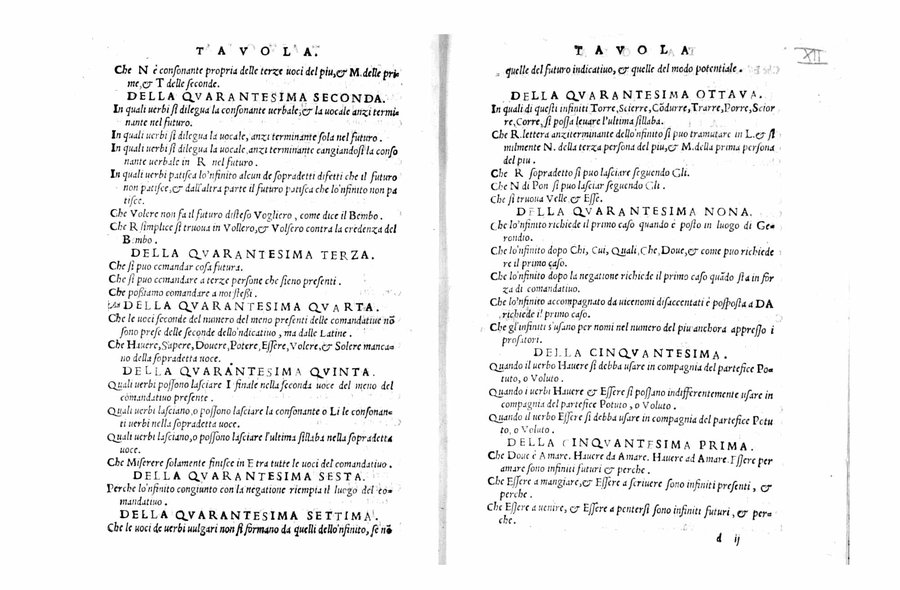 TAVOLA.
Che N è consonante propria delle terze uoci del piu,& M. delle pri=
me,& T delle seconde.
DELLA QVARANTESIMA SECONDA.
In quali uerbi si dilegua la consonante uerbale,& la uocale anzi termi=
nante nel futuro.
In quali uerbi si dilegua la uocale, anzi terminante sola nel futuro.
In quali uerbi si dilegua la uocale, anzi terminante cangiandosi la conso
nante uerbale in R nel futuro.
In quali uerbi patisca lo'nfinito alcun de sopradetti difetti che il futuro
non patisce,& dall'altra parte il futuro patisca che lo'nfinito non pa
tisce.
Che Volere non fa il futuro disteso Vogliero, come dice il Bembo.
Che R simplice si truoua in Vollero,& Volsero contra la credenza del
Bembo.
DELLA QVARANTESIMA TERZA.
Che si puo comandar cosa futura.
Che si puo comandare a terze persone che sieno presenti.
Che possiamo comandare a noi stessi.
DELLA QVARANTESIMA QVARTA.
Che le uoci seconde del numero del meno presenti delle comandatiue nō
sono prese delle seconde dello'ndicatiuo, ma dalle Latine.
Che Hauere, Sapere, Douere, Potere, Essere, Volere,& Solere manca=
no della sopradetta uoce.
DELLA QVARANTESIMA QVINTA.
Quali uerbi possono lasciare I finale nella seconda uoce del meno del
comandatiuo presente.
Quali uerbi lasciano,o possono lasciare la consonante o Li le consonan=
ti uerbali nella sopradetta uoce.
Quali uerbi lasciano,o possono lasciare l'ultima sillaba nella sopradetta
uoce.
Che Miserere solamente finisce in E tra tutte le uoci del comandatiuo.
DELLA QVARANTESIMA SESTA.
Perche lo'nfinito congiunto con la negatione riempia il luogo del co=
mandatiuo.
DELLA QVARANTESIMA SETTIMA.
Che le uoci de uerbi uulgari non si formano da quelli dello'nfinito, se nō
TAVOLA
XII
quelle del futuro indicatiuo, & quelle del modo potentiale.
DELLA QVARANTESIMA OTTAVA.
In quali di questi infiniti Torre,Scierre,Cōdurre,Trarre,Porre,Scior
re,Corre,si possa leuare l'ultima sillaba.
Che R.lettera anziterminante dello'nfinito si puo tramutare in L.& si
milmente N. della terza persona del piu,& M.della prima persona
del piu.
Che R sopradetto si puo lasciar seguendo Gli.
Che N di Pon si puo lasciar seguendo Gli.
Che si truoua Velle & Esse.
DELLA QVARANTESIMA NONA.
Che lo'nfinito richiede il primo caso quando è posto in luogo di Ge=
rondio.
Che lo'nfinito dopo Chi, Cui, Quali, Che, Doue,& come puo richiede
re il primo caso.
Che lo'nfinito dopo la negatione richiede il primo caso quādo sta in for
za di comandatiuo.
Che lo'nfinito accompagnato da uicenomi disaccentati è posposta a DA
richiede il primo caso.
Che gl'infiniti s'usano per nomi nel numero del piu anchora appresso i
prosatori.
DELLA CINQVANTESIMA.
Quando il uerbo Hauere si debba usare in compagnia del partefice Po=
tuto, o Voluto.
Quando i uerbi Hauere & Essere si possano indifferentemente usare in
compagnia del partefice Potuto, o Voluto.
Quando il uerbo Essere si debba usare in compagnia del partefice Potu
to, o Voluto.
DELLA CINQVANTESIMA PRIMA.
Che Douere Amare. Hauere da Amare. Hauere ad Amare. Essere per
amare sono infiniti futuri & perche.
Che Essere a mangiare,& Essere a scriuere sono infiniti presenti, &
perche.
Che Essere a uenire, & Essere a pentersi sono infiniti futuri, & per=
che.
d ij